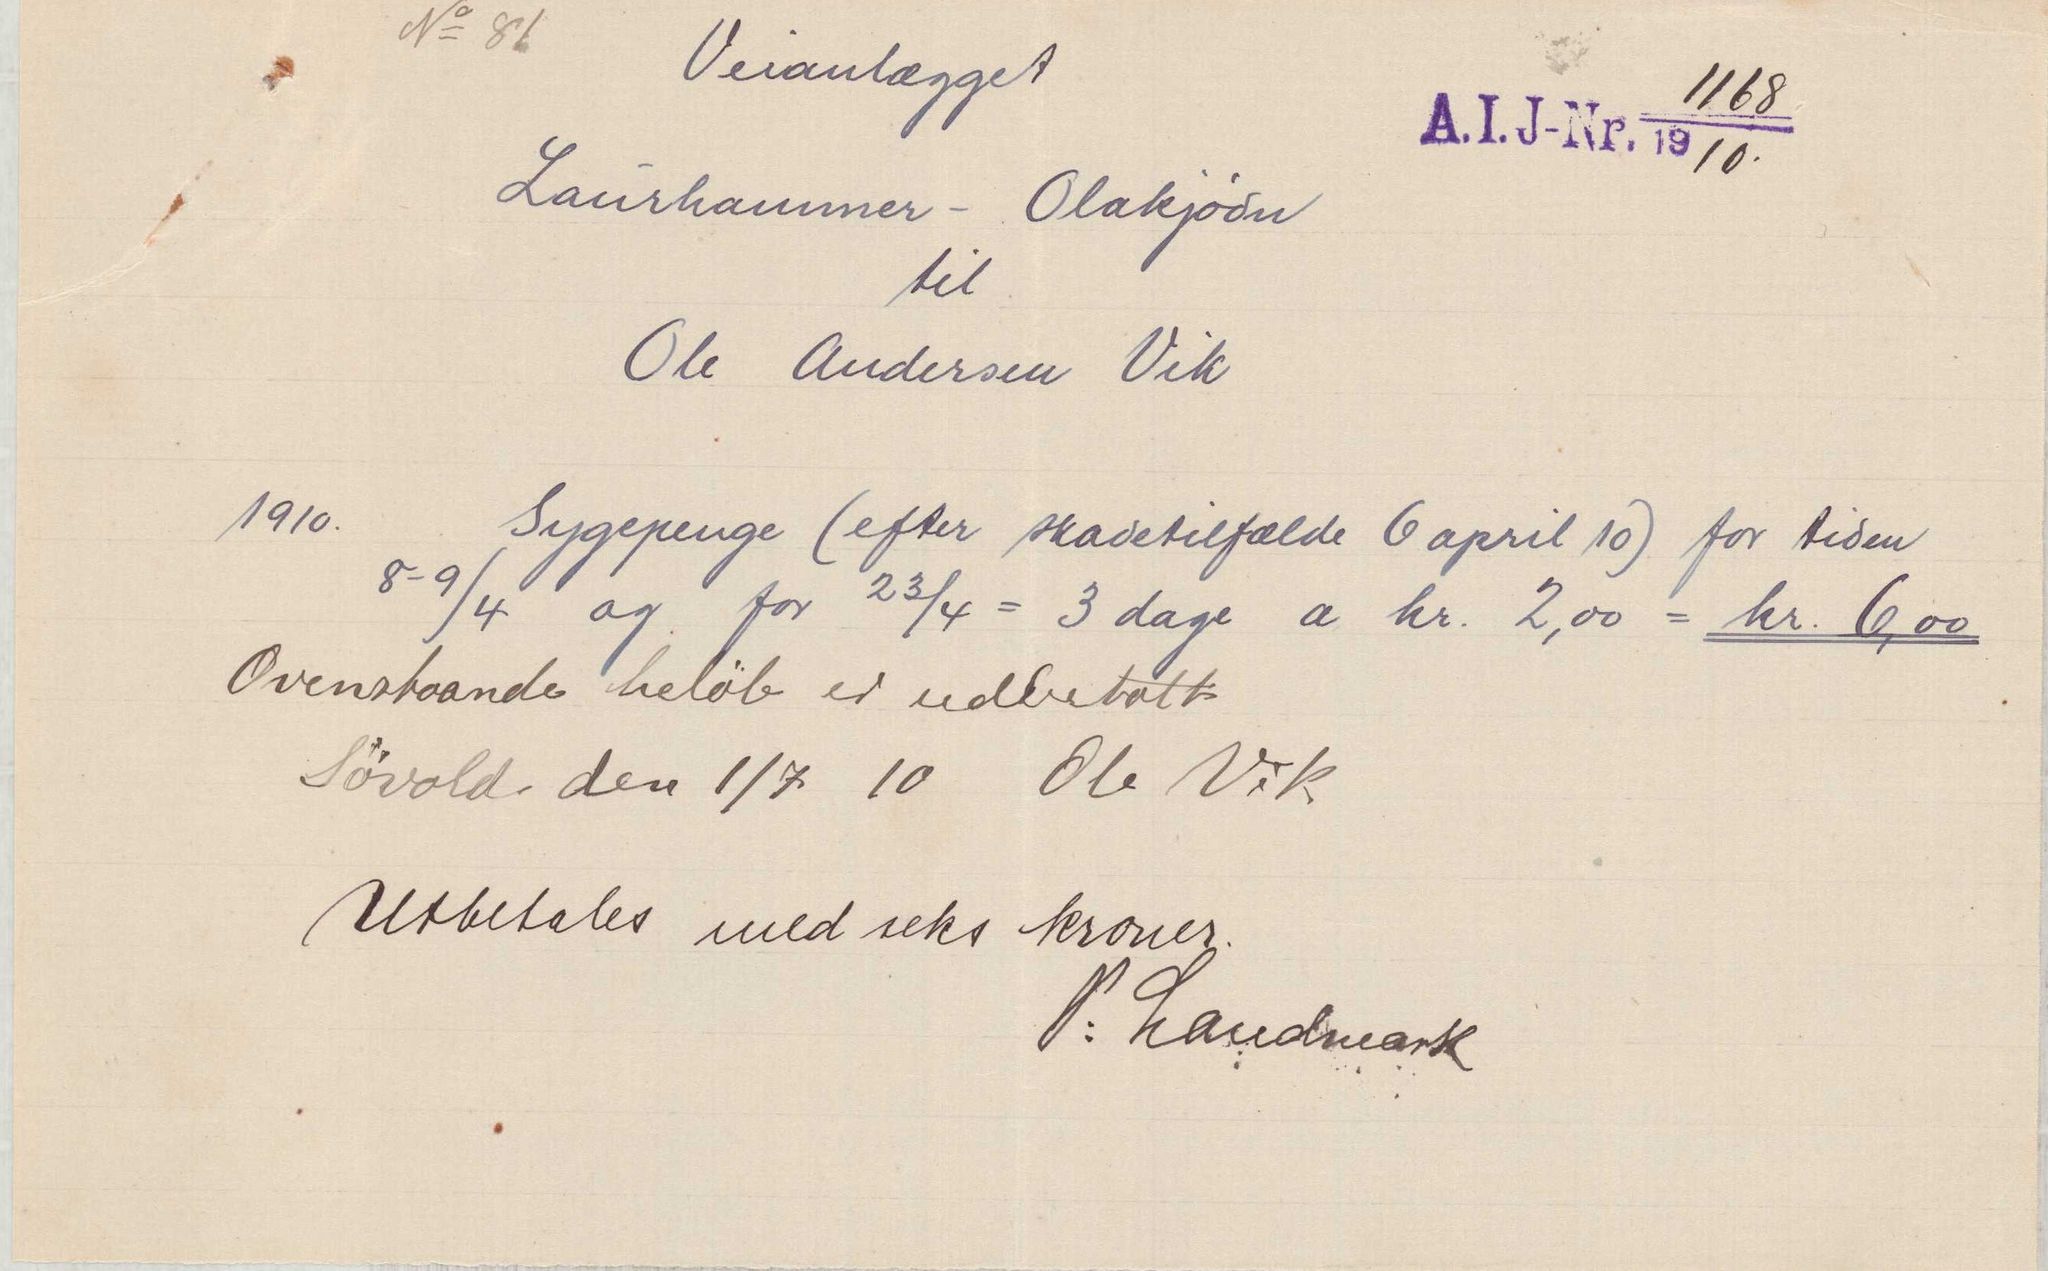 No 81
Veianlægget
A.I.J-Nr. 1168
1910.
Laurhammer - Olakjödn
til
Ole Andersen Vik
1910. Sygepenge (efter skadetilfælde 6 april 10) for tiden
8-9/4 og for 23/4 = 3 dage a kr. 2,00 = kr. 6,00
Ovenstaande belöb er udbetalt
Lövold den 1/7 10 Ole Vik
Utbetales med seks kroner.
P. Landmark